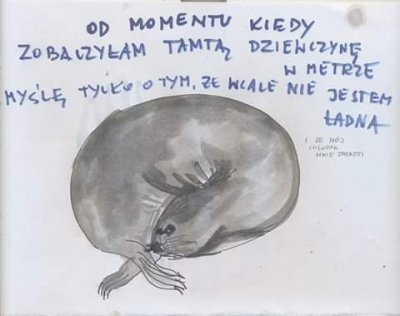 OD MOMENTU KIEDY
ZOBACZYŁAM TAMTĄ DZIEWCZYNĘ
W METRZE
MYŚLĘ TYLKO O TYM, ŻE WCALE NIE JESTEM
ŁADNA
I ŻE MÓJ
CHŁOPAK
MNIE ZDRADZI